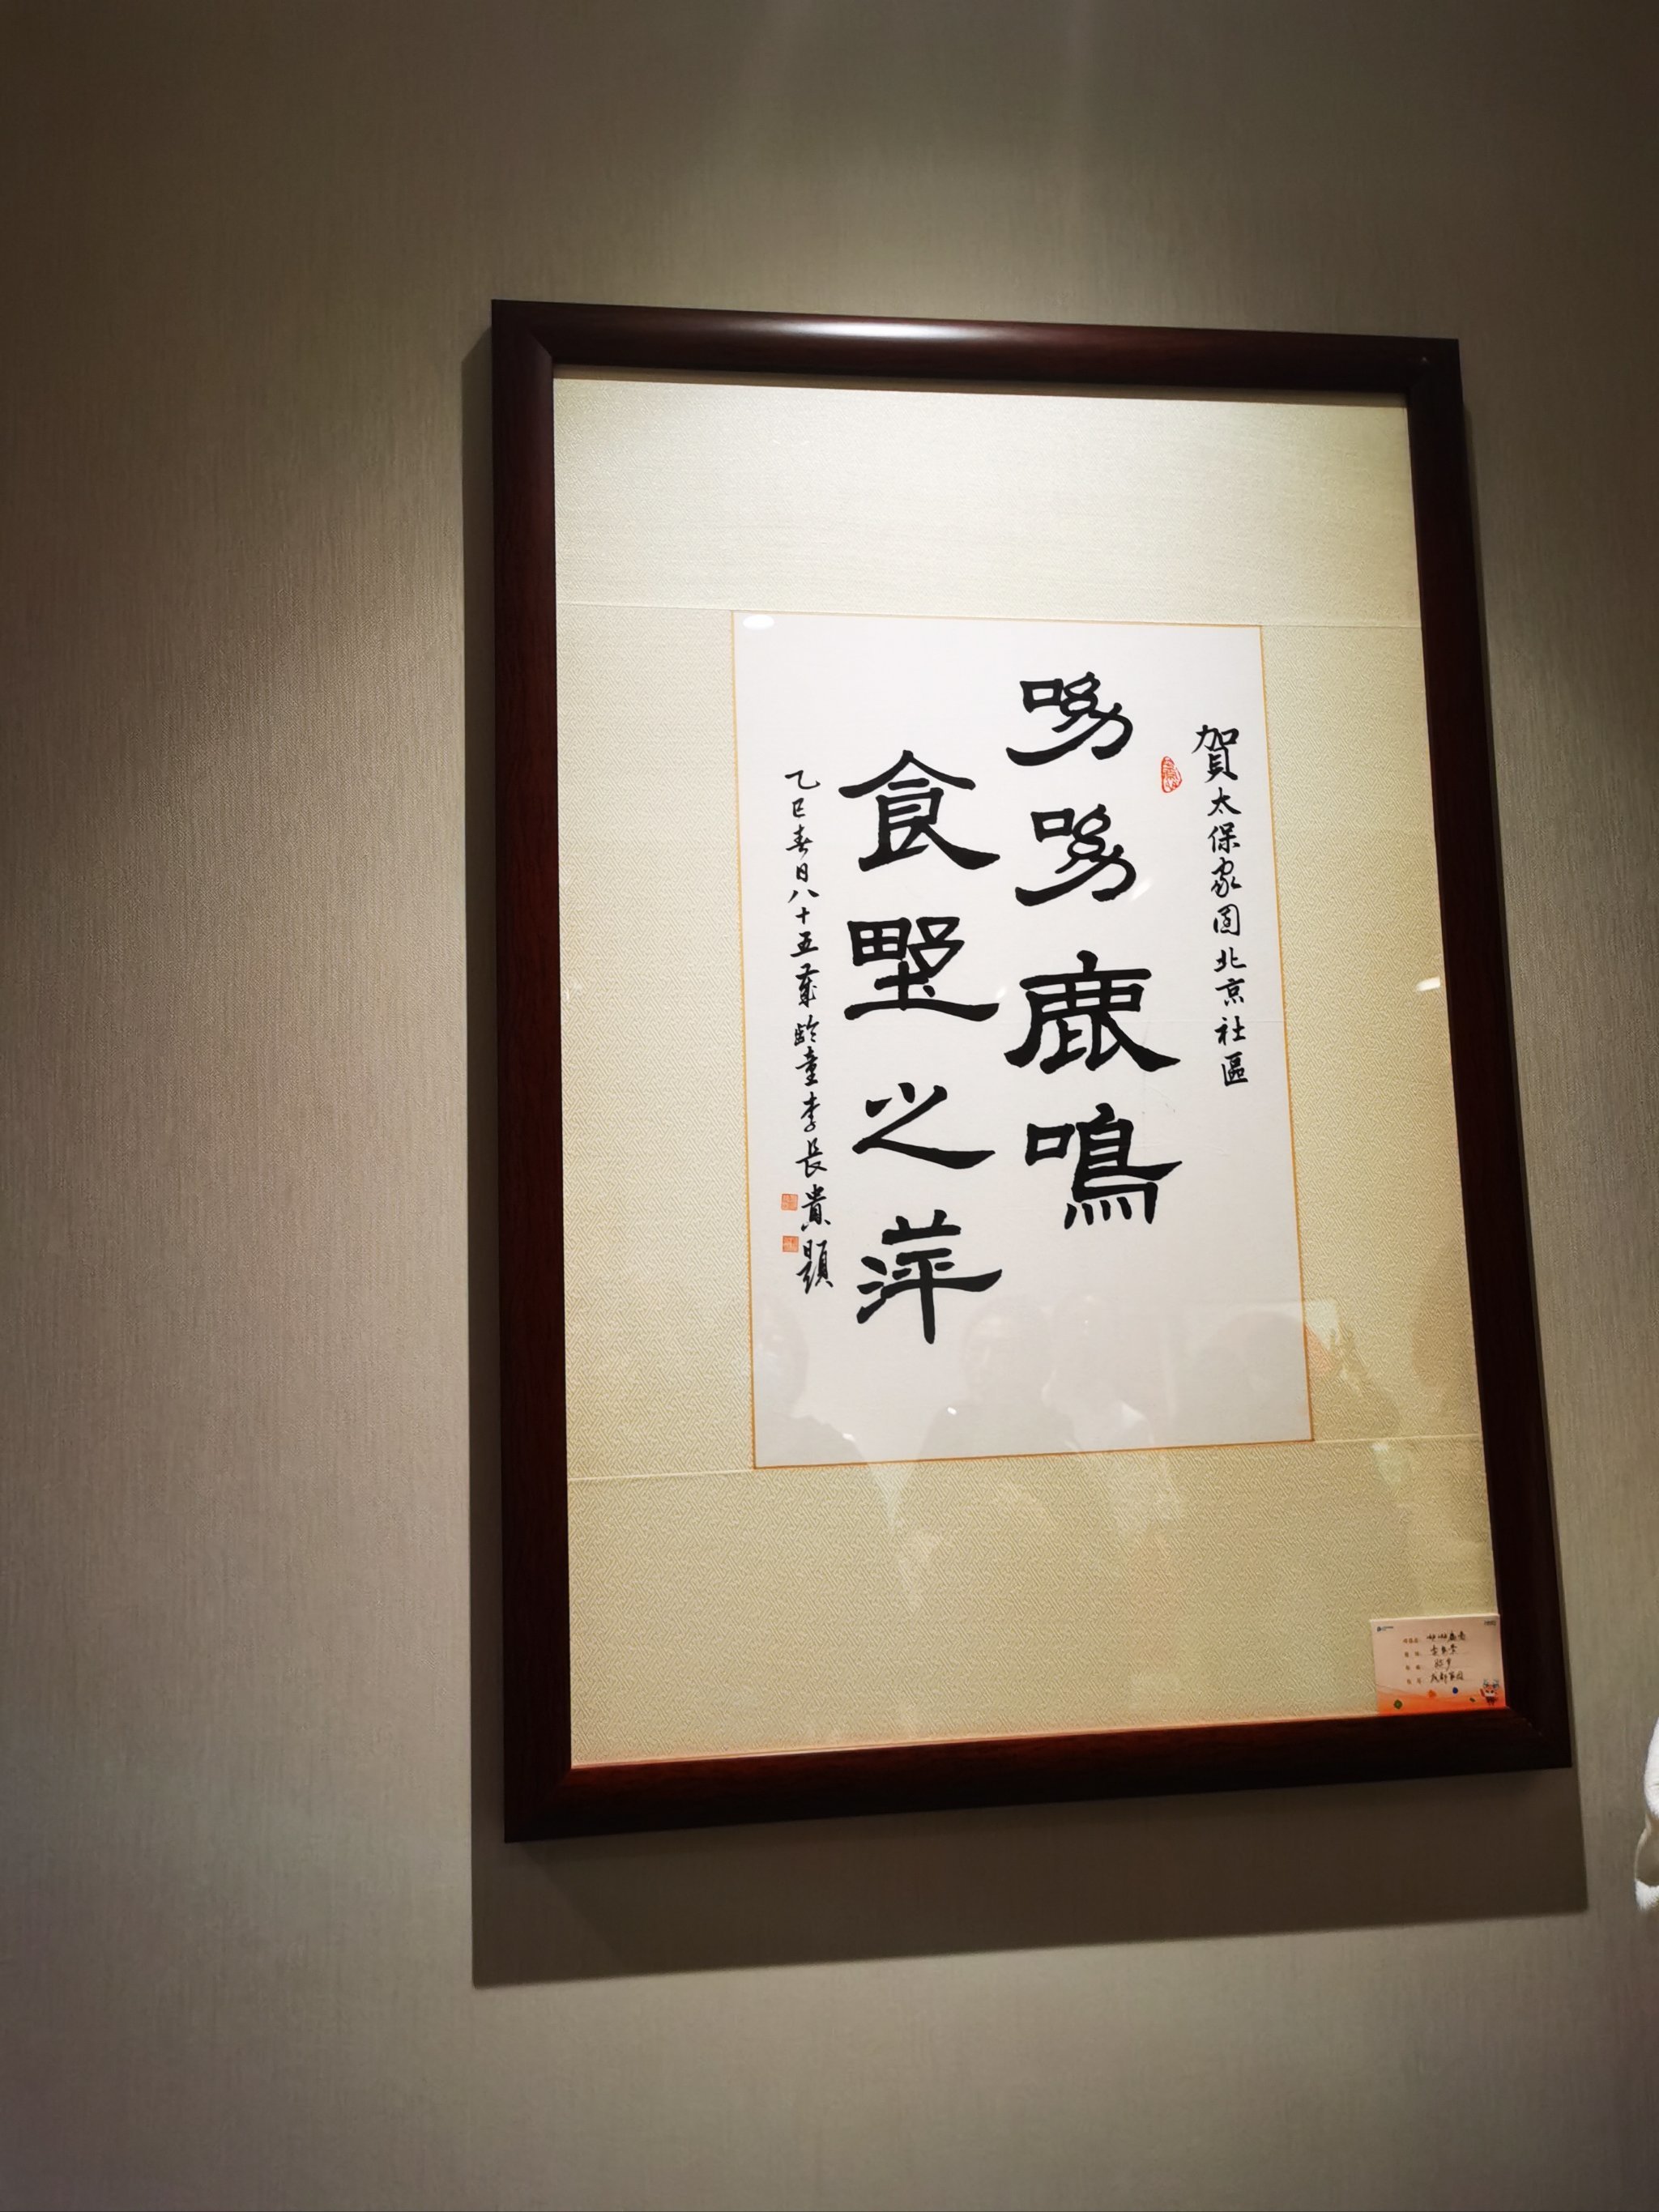 賀太保家園北京社區
呦呦鹿鳴
食埜之苹
乙巳春日八十五歲齡童李長貴題